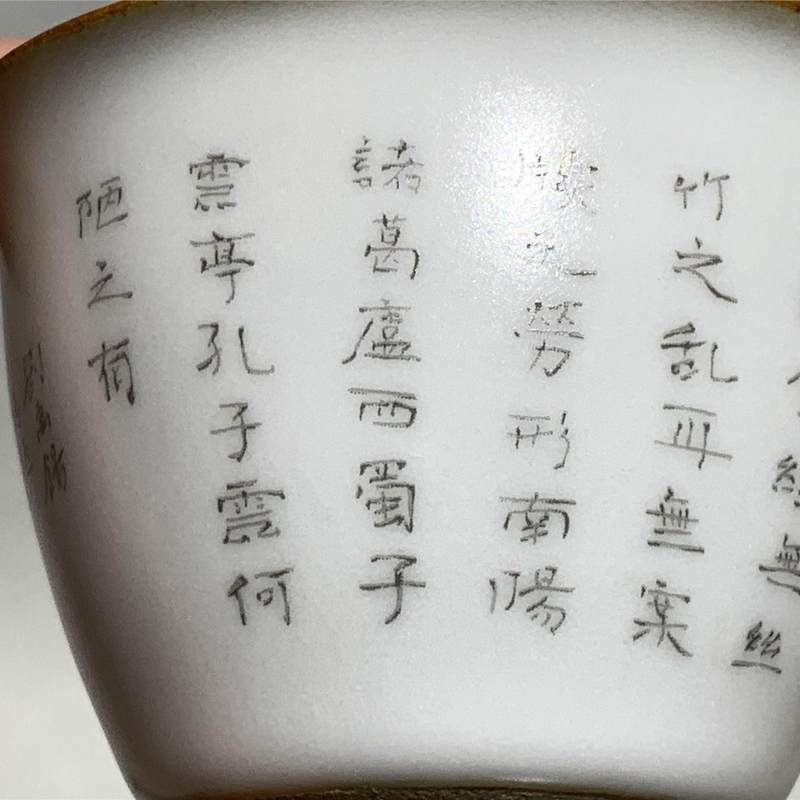 經無絲
竹之乱耳無案
牘之勞形南陽
諸葛廬西蜀子
雲亭孔子雲何
陋之有
劉禹錫